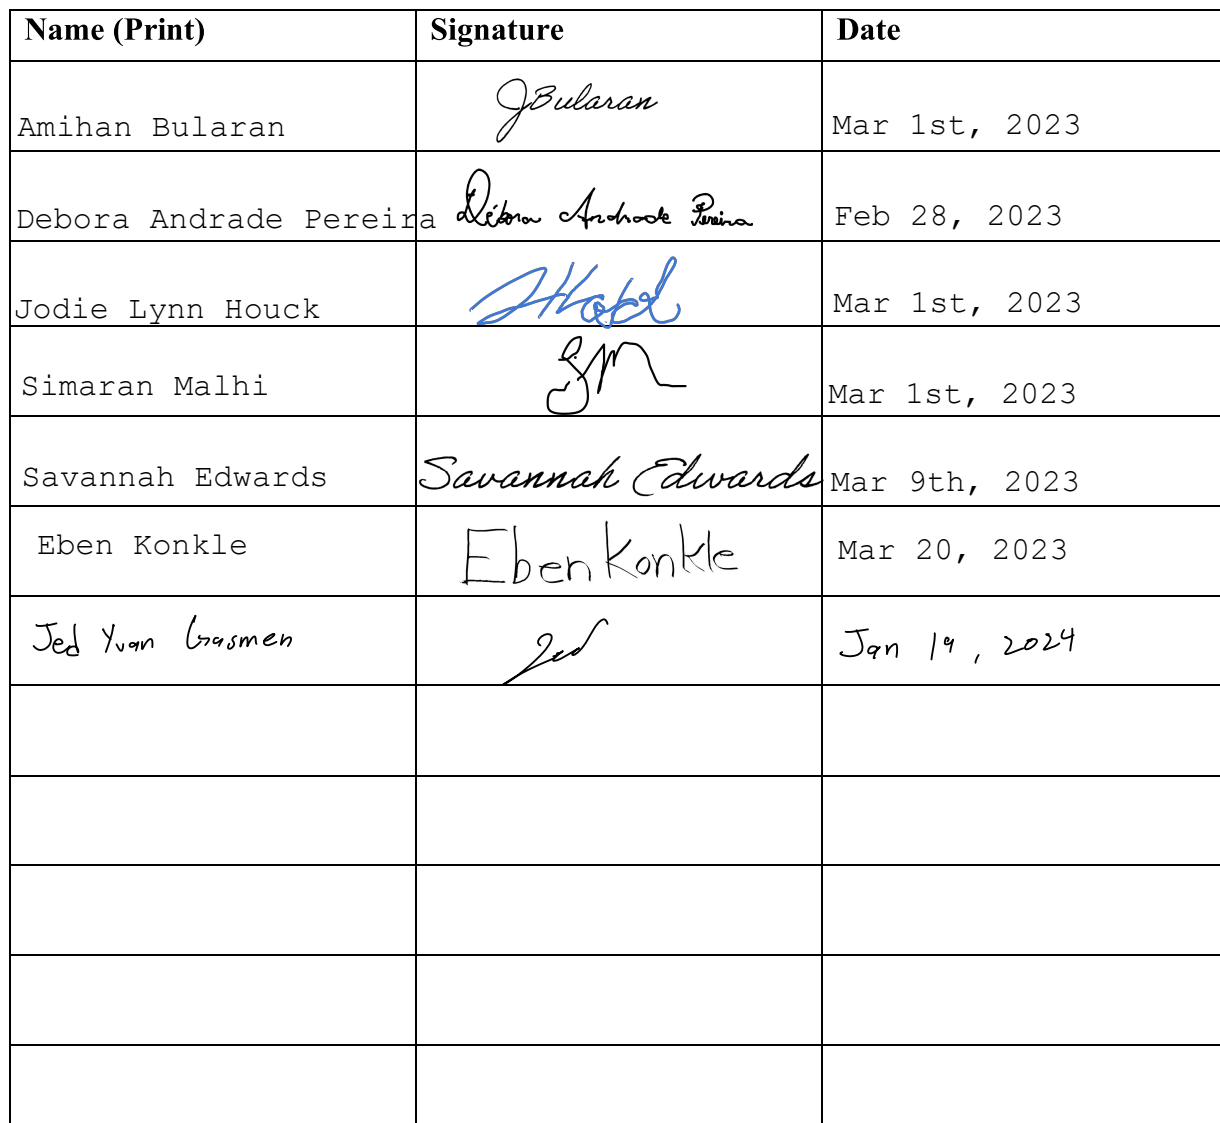 Name (Print) Signature Date
Amihan Bularan JBularan Mar 1st, 2023
Debora Andrade Pereira Débora Andrade Pereira Feb 28, 2023
Jodie Lynn Houck Mar 1st, 2023
Simaran Malhi SM Mar 1st, 2023
Savannah Edwards Savannah Edwards Mar 9th, 2023
Eben Konkle Eben Konkle Mar 20, 2023
Jed Yvan Gasmen Jed Jan 19, 2024